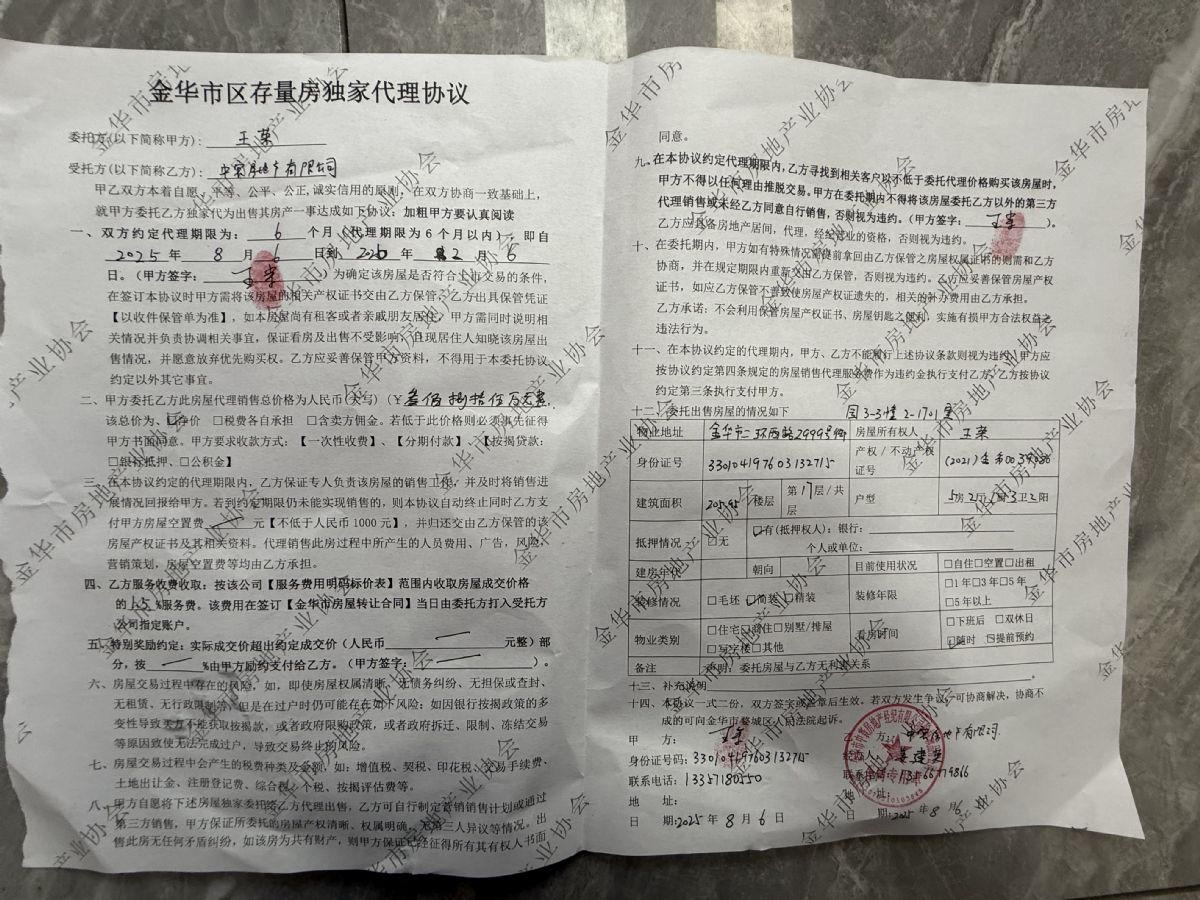 金华市区存量房独家代理协议
委托方(以下简称甲方): 王荣
受托方(以下简称乙方): 中家房地产有限公司
甲乙双方本着自愿、平等、公平、公正,诚实信用的原则,在双方协商一致基础上,
就甲方委托乙方独家代为出售其房产一事达成如下协议:加粗甲方要认真阅读
一、双方约定代理期限为: 6 个月(代理期限为6个月以内),即自
2025 年 8 月 6 日到 年 2 月 6
日。(甲方签字: 王荣 为确定该房屋是否符合上市交易的条件,
在签订本协议时甲方需将该房屋的相关产权证书交由乙方保管,乙方出具保管凭证
【以收件保管单为准】,如本房屋尚有租客或者亲戚朋友居住,甲方需同时说明相
关情况并负责协调相关事宜,保证看房及出售不受影响,且现居住人知晓该房屋出
售情况,并愿意放弃优先购买权。乙方应妥善保管甲方资料,不得用于本委托协议
约定以外其它事宜。
二、甲方委托乙方此房屋代理销售总价格为人民币(大写)(¥
该总价为、☑净价 □税费各自承担 □含卖方佣金。若低于此价格则必须事先征得
甲方书面同意。甲方要求收款方式:【一次性收费】、【分期付款】、【按揭贷款:
□银行抵押、□公积金】
三、在本协议约定的代理期限内,乙方保证专人负责该房屋的销售工作,并及时将销售进
展情况回报给甲方。若到约定期限仍未能实现销售的,则本协议自动终止同时乙方支
付甲方房屋空置费 元【不低于人民币1000元】,并归还交由乙方保管的该
房屋产权证书及其相关资料。代理销售此房过程中所产生的人员费用、广告,风险,
营销策划,房屋空置费等均由乙方承担。
四、乙方服务收费收取:按该公司【服务费用明码标价表】范围内收取房屋成交价格
的 1.5 %服务费。该费用在签订【金华市房屋转让合同】当日由委托方打入受托方
公司指定账户。
五、特别奖励约定:实际成交价超出约定成交价(人民币 元整)部
分,按 %由甲方励约支付给乙方。(甲方签字: )。
六、房屋交易过程中存在的风险,如,即使房屋权属清晰、无债务纠纷、无担保或查封、
无租赁、无行政限制等,但是在过户时仍可能存在如下风险:如因银行按揭政策的多
变性导致买方不能获取按揭款,或者政府限购政策,或者政府拆迁、限制、冻结交易
等原因致使无法完成过户,导致交易终止的风险。
七、房屋交易过程中会产生的税费种类及金额,如:增值税、契税、印花税、交易手续费、
土地出让金、注册登记费、综合税、个税、按揭评估费等。
八、甲方自愿将下述房屋独家委托给乙方代理出售,乙方可自行制定营销销售计划或通过
第三方销售,甲方保证所委托的房屋产权清晰、权属明确、无第三人异议等情况。出
售此房无任何矛盾纠纷,如该房为共有财产,则甲方保证已经征得所有其有权人书面
同意。
九、在本协议约定代理期限内,乙方寻找到相关客户以不低于委托代理价格购买该房屋时,
甲方不得以任何理由推脱交易。甲方在委托期内不得将该房屋委托乙方以外的第三方
代理销售或未经乙方同意自行销售,否则视为违约。(甲方签字: 王荣
乙方应具备房地产居间,代理,经纪营业的资格,否则视为违约。
十、在委托期内,甲方如有特殊情况需提前拿回由乙方保管之房屋权属证书的则需和乙方
协商,并在规定期限内重新交由乙方保管,否则视为违约。乙方应妥善保管房屋产权
证书,如应乙方保管不善致使房屋产权证遗失的,相关的补办费用由乙方承担。
乙方承诺:不会利用保管房屋产权证书、房屋钥匙之便利,实施有损甲方合法权益之
违法行为。
十一、在本协议约定的代理期内,甲方、乙方不能履行上述协议条款则视为违约,甲方应
按协议约定第四条规定的房屋销售代理服务费作为违约金执行支付乙方,乙方按协议
约定第三条执行支付甲方。
十二、委托出售房屋的情况如下 园3-3幢2-1701室
物业地址 金华市二环西路2999号 房屋所有权人 王荣
身份证号 330104197603132715 产权/不动产权证号 (2021)金 0039086
建筑面积 205.95 楼层 第17层/共 层 户型 5房2厅 厨3卫2阳
抵押情况 ☑有(抵押权人):银行: □无 个人或单位:
建房年代 朝向 目前使用状况 □自住□空置□出租
装修情况 □毛坯 ☑简装 □精装 装修年限 □1年□3年□5年 □5年以上
物业类别 □住宅□商住□别墅/排屋 □写字楼□其他 看房时间 □下班后 □双休日 ☑随时 ☑提前预约
备注 声明:委托房屋与乙方无利害关系
十三、补充说明
十四、本协议一式二份,双方签字或盖章后生效。若双方发生争议,可协商解决,协商不
成的可向金华市婺城区人民法院起诉。
甲 方: 王荣
身份证号码: 330104197603132715
联系电话: 13357180550
地 址:
日 期:2025 年 8 月 6 日
乙 方: 中家房地产有限公司
联系电话:
地 址:
日 期:2025 年 8 月 6 日
金华市房地产业协会